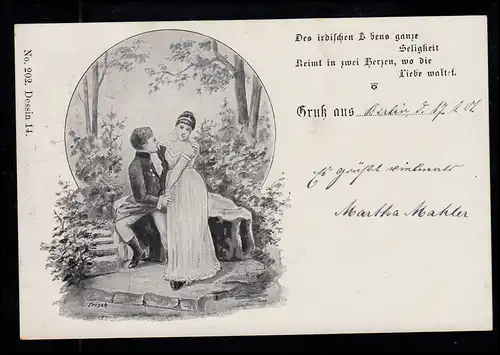 Des irdischen L bens ganze
Seligkeit
Keimt in zwei Herzen, wo die
Liebe walt:t.
Gruß aus Berlin, d. 17. 1. 01.
Es grüßt vielmals
Martha Mahler
No. 202. Dessin 14.
Frisch.